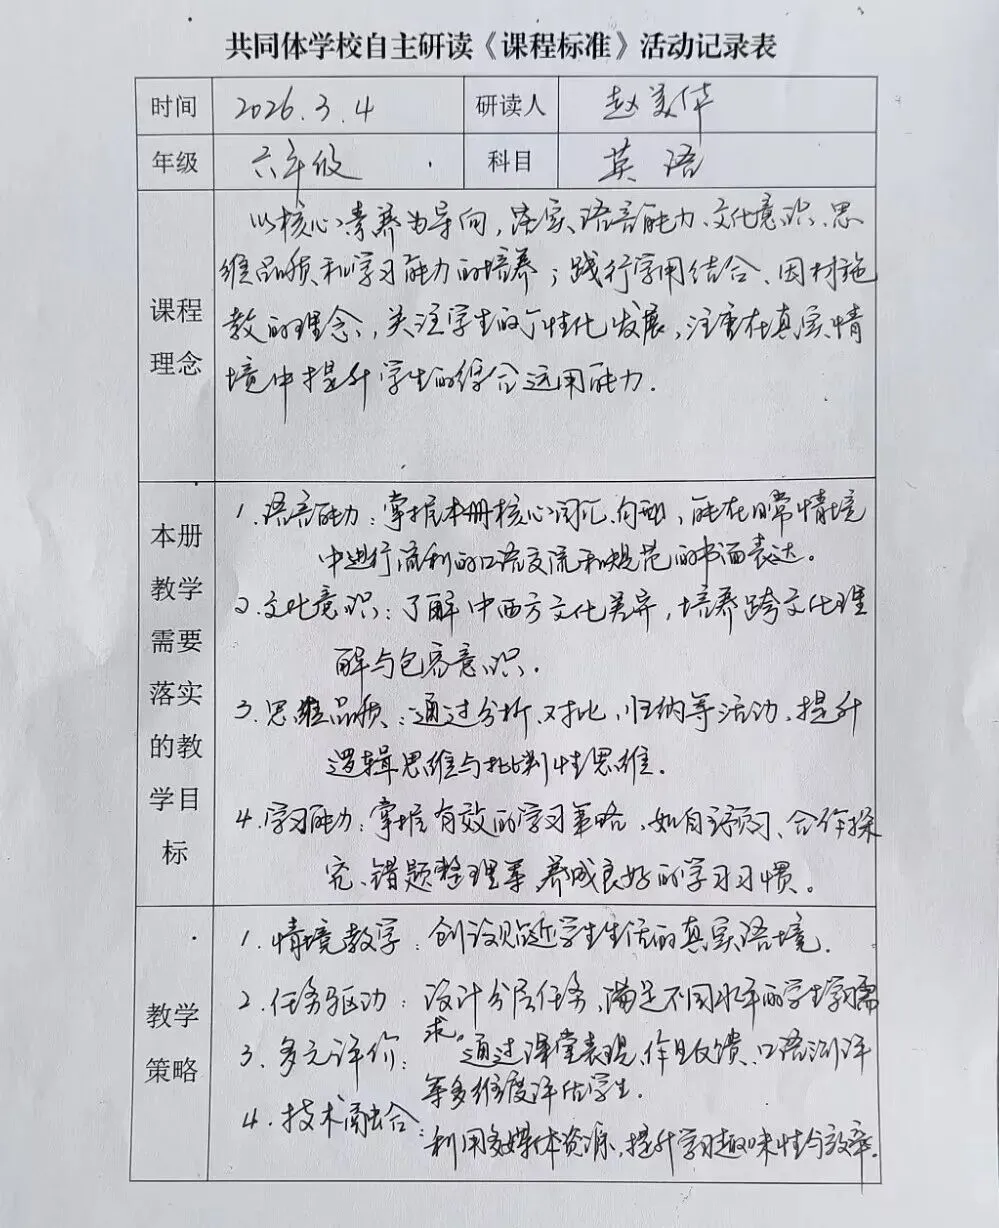 共同体学校自主研读《课程标准》活动记录表
时间 2026.3.4 研读人 赵美华
年级 六年级 科目 英语
课程
理念
以核心素养为导向，落实语言能力、文化意识、思
维品质和学习能力的培养；践行学用结合、因材施
教的理念，关注学生的个性化发展，注重在真实情
境中提升学生的综合运用能力.
本册
教学
需要
落实
的教
学目
标
1. 语言能力：掌握本册核心词汇、句型，能在日常情境
中进行流利的口语交流和规范的书面表达。
2. 文化意识：了解中西方文化差异，培养跨文化理
解与包容意识.
3. 思维品质：通过分析、对比、归纳等活动，提升
逻辑思维与批判性思维.
4. 学习能力：掌握有效的学习策略，如自主预习、合作探
究、错题整理等，养成良好的学习习惯。
教学
策略
1. 情境教学：创设贴近学生生活的真实语境.
2. 任务驱动：设计分层任务，满足不同水平的学生学习需
求。
3. 多元评价：通过课堂表现、作业反馈、口语测评
等多维度评估学生.
4. 技术融合：利用多媒体资源，提升学习趣味性与效率.